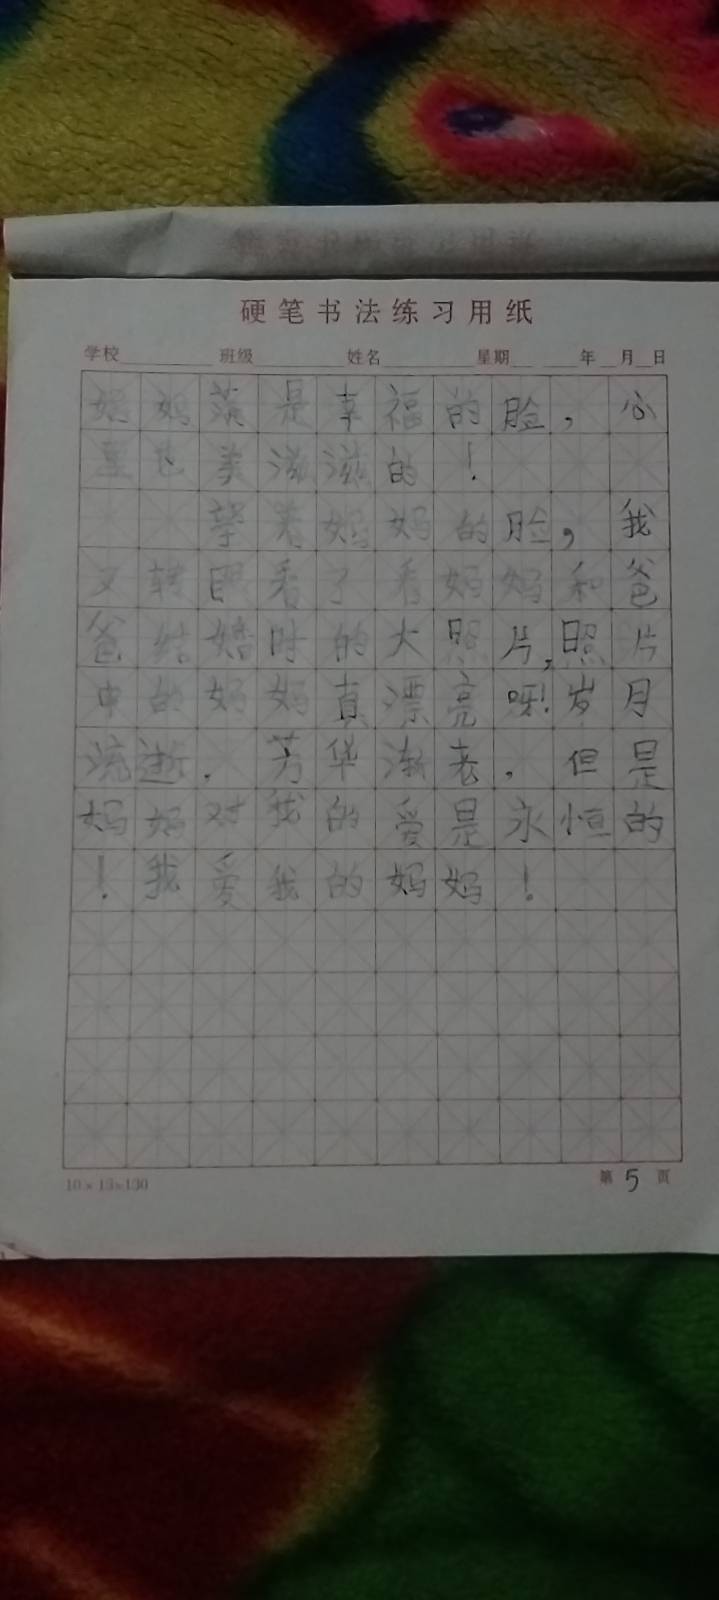 硬笔书法练习用纸
学校 班级 姓名 星期 年 月 日
妈妈满是幸福的脸，心
里也美滋滋的！
望着妈妈的脸，我
又转眼看了看妈妈和爸
爸结婚时的大照片,照片
中的妈妈真漂亮呀!岁月
流逝．芳华渐老，但是
妈妈对我的爱是永恒的
！我爱我的妈妈！
10×13=130 第5页